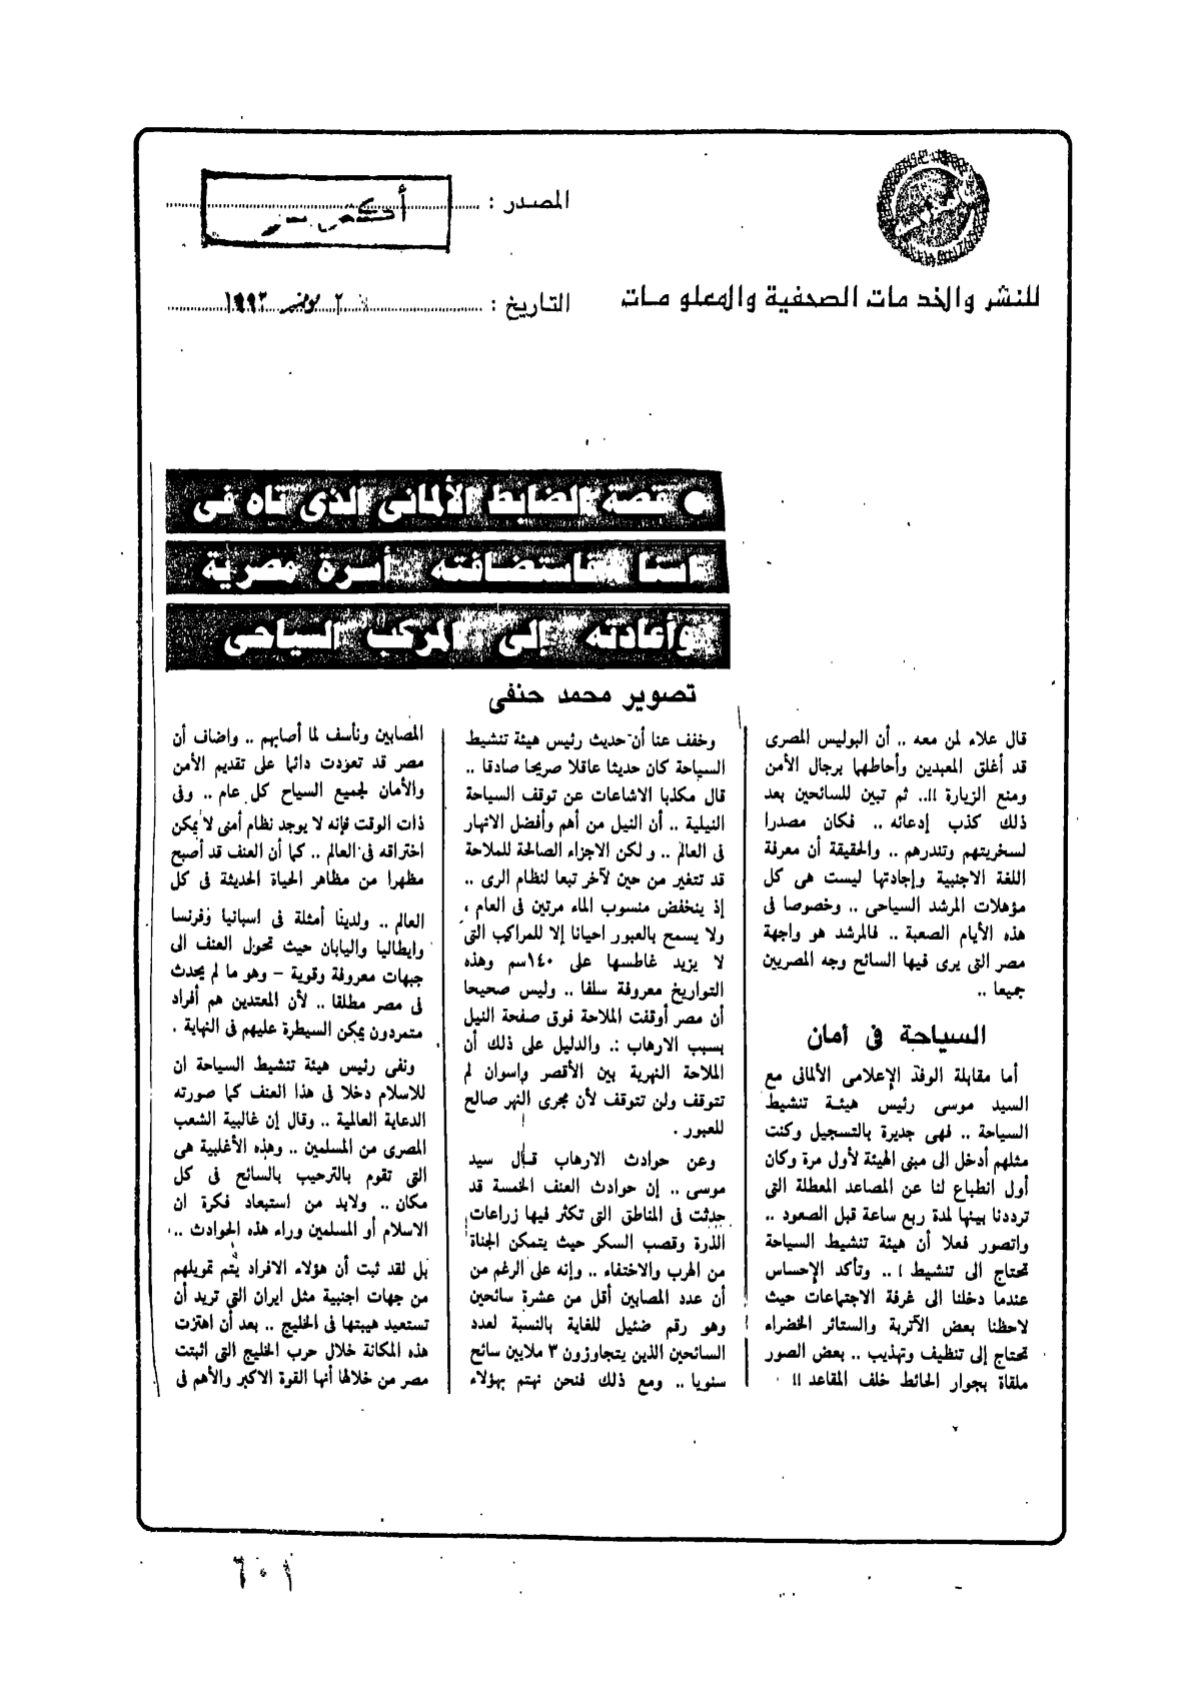 المصدر :
أكتوبر
للنشر والخدمات الصحفية والمعلومات
التاريخ : نوفمبر ١٩٩٢
● قصة الضابط الألمانى الذى تاه فى
اسنا فاستضافته أسرة مصرية
وأعادته إلى المركب السياحى
تصوير محمد حنفى
قال علاء لمن معه .. أن البوليس المصرى
قد أغلق المعبدين وأحاطهما برجال الأمن
ومنع الزيارة !!.. ثم تبين للسائحين بعد
ذلك كذب إدعائه .. فكان مصدرا
لسخريتهم وتندرهم .. والحقيقة أن معرفة
اللغة الاجنبية وإجادتها ليست هى كل
مؤهلات المرشد السياحى .. وخصوصا فى
هذه الأيام الصعبة .. فالمرشد هو واجهة
مصر التى يرى فيها السائح وجه المصريين
جميعا ..
السياحة فى أمان
أما مقابلة الوفد الإعلامى الألمانى مع
السيد موسى رئيس هيئة تنشيط
السياحة .. فهى جديرة بالتسجيل وكنت
مثلهم أدخل الى مبنى الهيئة لأول مرة وكان
أول انطباع لنا عن المصاعد المعطلة التى
ترددنا بينها لمدة ربع ساعة قبل الصعود ..
واتصور فعلا أن هيئة تنشيط السياحة
تحتاج الى تنشيط ! .. وتأكد الإحساس
عندما دخلنا الى غرفة الاجتماعات حيث
لاحظنا بعض الأتربة والستائر الخضراء
تحتاج إلى تنظيف وتهذيب .. بعض الصور
ملقاة بجوار الحائط خلف المقاعد !!
وخفف عنا أن حديث رئيس هيئة تنشيط
السياحة كان حديثا عاقلا صريحا صادقا ..
قال مكذبا الاشاعات عن توقف السياحة
النيلية .. أن النيل من أهم وأفضل الانهار
فى العالم .. ولكن الاجزاء الصالحة للملاحة
قد تتغير من حين لآخر تبعا لنظام الرى ..
إذ ينخفض منسوب الماء مرتين فى العام ،
ولا يسمح بالعبور احيانا إلا للمراكب التى
لا يزيد غاطسها على ١٤٠سم وهذه
التواريخ معروفة سلفا .. وليس صحيحا
أن مصر أوقفت الملاحة فوق صفحة النيل
بسبب الارهاب .. والدليل على ذلك أن
الملاحة النهرية بين الأقصر واسوان لم
تتوقف ولن تتوقف لأن مجرى النهر صالح
للعبور .
وعن حوادث الارهاب قال سيد
موسى .. إن حوادث العنف الخمسة قد
حدثت فى المناطق التى تكثر فيها زراعات
الذرة وقصب السكر حيث يتمكن الجناة
من الهرب والاختفاء .. وإنه على الرغم من
أن عدد المصابين أقل من عشرة سائحين
وهو رقم ضئيل للغاية بالنسبة لعدد
السائحين الذين يتجاوزون ٣ ملايين سائح
سنويا .. ومع ذلك فنحن نهتم بهؤلاء
المصابين ونأسف لما أصابهم .. واضاف أن
مصر قد تعودت دائما على تقديم الأمن
والأمان لجميع السياح كل عام .. وفى
ذات الوقت فإنه لا يوجد نظام أمنى لا يمكن
اختراقه فى العالم .. كما أن العنف قد أصبح
مظهرا من مظاهر الحياة الحديثة فى كل
العالم .. ولدينا أمثلة فى اسبانيا وفرنسا
وايطاليا واليابان حيث تحول العنف الى
جبهات معروفة وقوية – وهو ما لم يحدث
فى مصر مطلقا .. لأن المعتدين هم أفراد
متمردون يمكن السيطرة عليهم فى النهاية .
ونفى رئيس هيئة تنشيط السياحة ان
للاسلام دخلا فى هذا العنف كما صورته
الدعاية العالمية .. وقال إن غالبية الشعب
المصرى من المسلمين .. وهذه الأغلبية هى
التى تقوم بالترحيب بالسائح فى كل
مكان .. ولابد من استبعاد فكرة ان
الاسلام أو المسلمين وراء هذه الحوادث ..
بل لقد ثبت أن هؤلاء الافراد يتم تمويلهم
من جهات اجنبية مثل ايران التى تريد أن
تستعيد هيبتها فى الخليج .. بعد أن اهتزت
هذه المكانة خلال حرب الخليج التى اثبتت
مصر من خلالها أنها القوة الاكبر والأهم فى
٦٠١